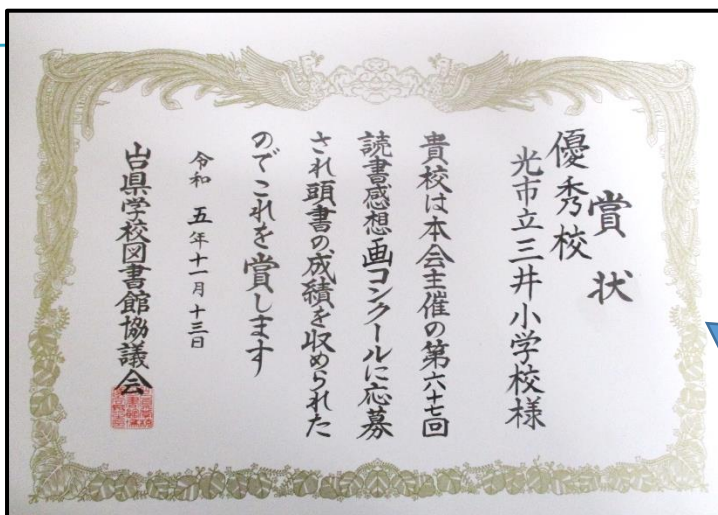 賞状
優秀校
光市立三井小学校様
貴校は本会主催の第六十七回
読書感想画コンクールに応募
され頭書の成績を収められた
のでこれを賞します
令和 五年十一月十三日
山口県学校図書館協議会